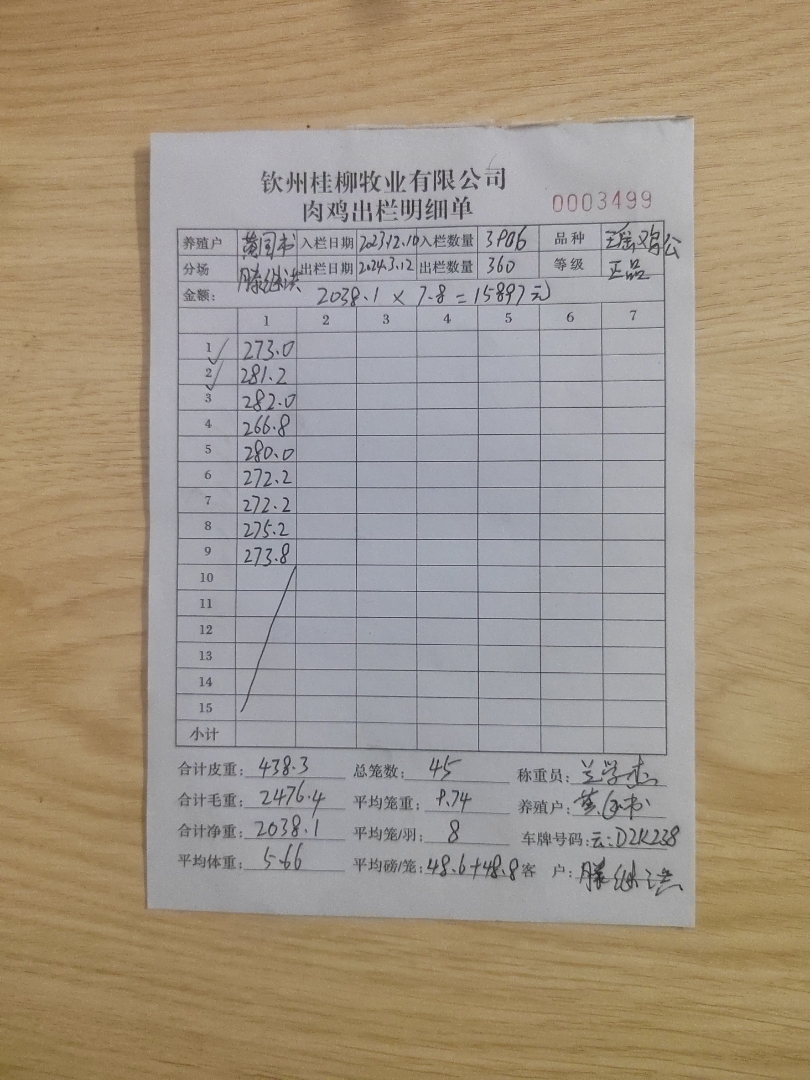 钦州桂柳牧业有限公司
肉鸡出栏明细单 0003499
养殖户 黄国书 入栏日期 2023.12.10 入栏数量 3906 品种 瑶鸡公
分场 滕继洪 出栏日期 2024.3.12 出栏数量 360 等级 正品
金额: 2038.1 × 7.8 = 15897元
1 2 3 4 5 6 7
1 273.0
2 281.2
3 282.0
4 266.8
5 280.0
6 272.2
7 272.2
8 275.2
9 273.8
10
11
12
13
14
15
小计
合计皮重: 438.3 总笼数: 45 称重员:
合计毛重: 2476.4 平均笼重: 9.74 养殖户: 黄国书
合计净重: 2038.1 平均笼/羽: 8 车牌号码: 云:D2K238
平均体重: 5.66 平均磅/笼: 48.6+48.8 客 户: 滕继洪